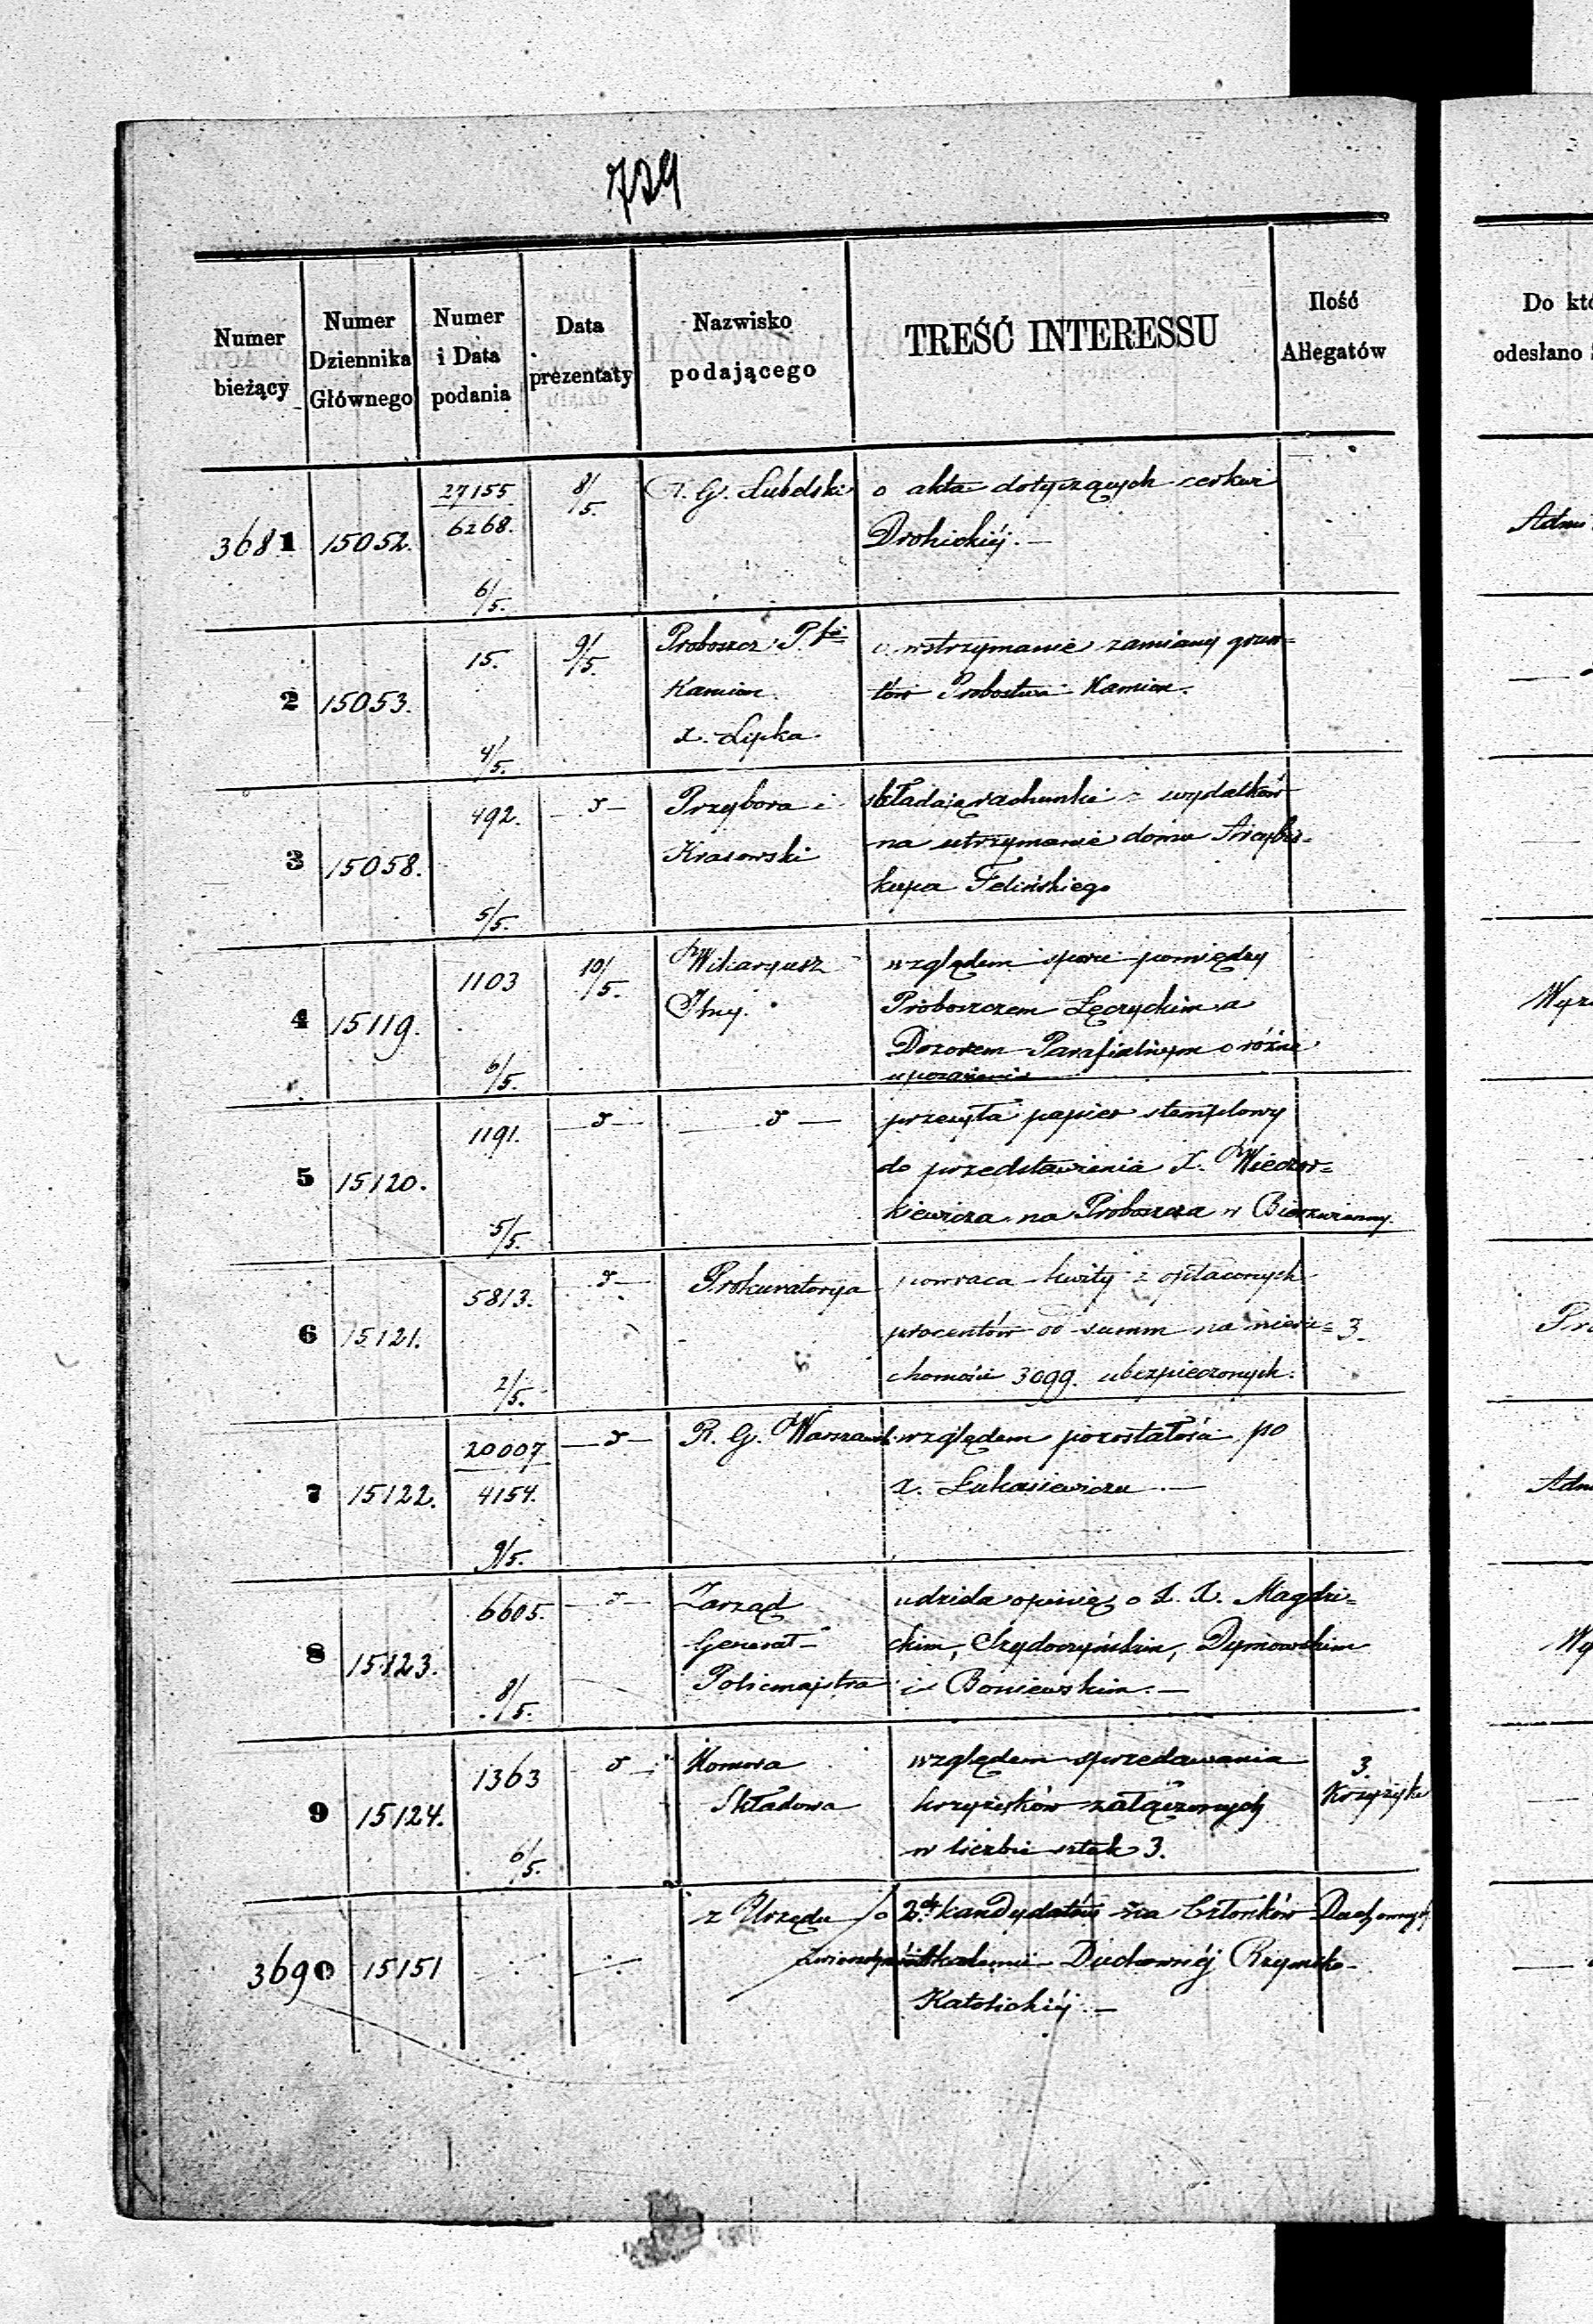 729
Numer bieżący
Numer Dziennika Głównego
Numer i Data podania
Data prezentaty
Nazwisko podającego
TREŚĆ INTERESSU
Ilość Allegatów
Do któ
odesłano
3681 15052. 27155 / 6268. 6/5. 8/5. R. G. Lubelski o akta dotyczących cerkwi
Drohickiéj.—
Adm
2 15053. 15. 4/5. 9/5. Proboszcz P.fii o wstrzymanie zamiany grun=
Kamion tów Probostwa Kamion.
X. Lipka
3 15058. 492. 5/5. —d— Przybora i składają rachunki z wydatków
Krasowski na utrzymanie domu Arcybis=
kupa Felińskiego
4 15119. 1103 6/5. 10/5. Wikaryusz względem sporu pomiędzy
Proboszczem Łęczyckim a
Dozorem Parafialnym o różne
Wyz
5 15120. 1191. 5/5. —d— —d— przesyła papier stemplowy
do przedstawienia X. Wieczor=
kiewicza na Proboszcza w
6 15121. 5813. 2/5. —d— Prokuratorya powraca kwity z opłaconych
procentów od summ na nieru= 3.
chomości 3099. ubezpieczonych.
Pr
7 15122. 20007 / 4154. 9/5. —d— R. G. Warszawsk. względem pozostałości po
X. Łukasiewiczu.—
Adm
8 15123. 6605. 8/5. —d— Zarząd udziela opinię o X. X. Magdzi=
Generał- ckim, Dymowskim
Policmajstra i Boniewskim.—
Wy
9 15124. 1363 6/5. —d— Komora względem sprzedawania 3.
Składowa krzyżyków załączonych Krzyżyki
w liczbie sztuk 3.
3690 15151 z Urzędu o 2ch kandydatów na Członków Duchownych
Akademii Duchownéj Rzymsko-
Katolickiéj.—